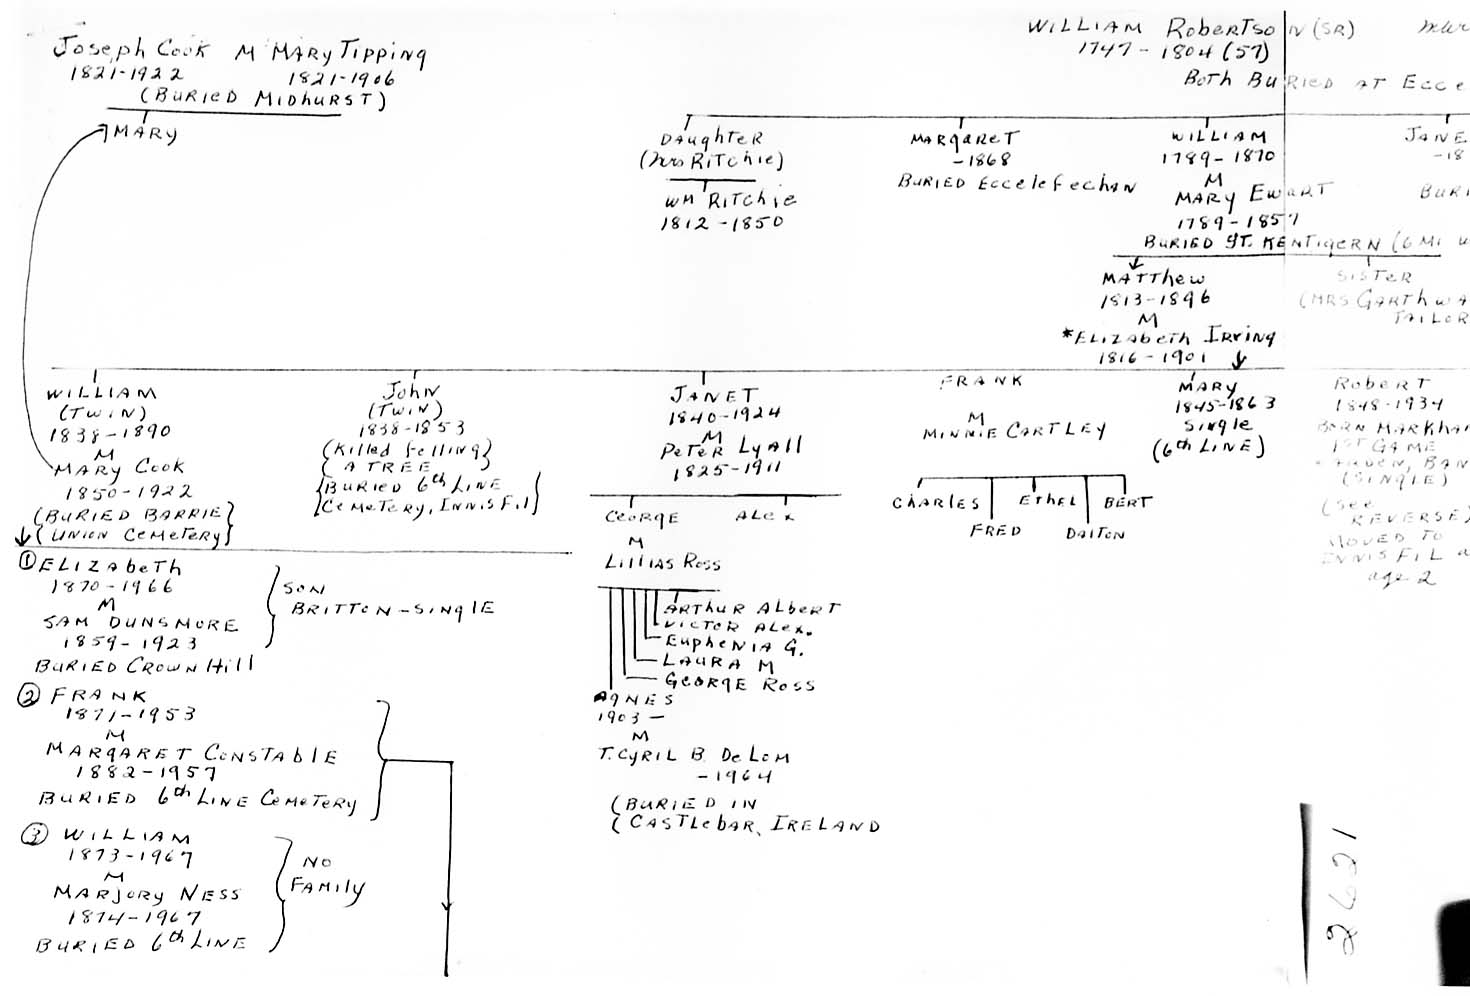 Joseph Cook M Mary Tipping
1821-1922 1821-1906
(Buried Midhurst)
Mary
William Robertson (SR)
1747-1804 (57)
Both Buried at Ecce
Daughter
(Mrs Ritchie)
Wm Ritchie
1812-1850
Margaret
-1868
Buried Eccelefechan
William
1789-1870
M
Mary Ewart
1789-1857
Buried St. Kentigern (6 Mi
Jane
-18
Buri
Matthew
1813-1896
M
*Elizabeth Irving
1816-1901
Sister
(Mrs Garthwa
Tailor
William
(Twin)
1838-1890
M
Mary Cook
1850-1922
(Buried Barrie
Union Cemetery)
John
(Twin)
1838-1853
(Killed felling
a tree)
Buried 6th Line
Cemetery, Innisfil
Janet
1840-1924
M
Peter Lyall
1825-1911
George
M
Lillias Ross
Alex
Arthur Albert
Victor Alex.
Euphenia G.
Laura M
George Ross
Agnes
1903-
M
T. Cyril B. DeLom
-1964
(Buried in
Castlebar, Ireland
Frank
M
Minnie Cartley
Charles
Fred
Ethel
Dalton
Bert
Mary
1845-1863
Single
(6th Line)
Robert
1848-1934
Born Markha
1st Game
Ban
(Single)
(See
Reverse)
Moved to
Innisfil a
age 2
① Elizabeth
1870-1966
M
Sam Dunsmore
1859-1923
Buried Crown Hill
Son
Britton-Single
② Frank
1871-1953
M
Margaret Constable
1882-1957
Buried 6th Line Cemetery
③ William
1873-1967
M
Marjory Ness
1874-1967
Buried 6th Line
No
Family
2621